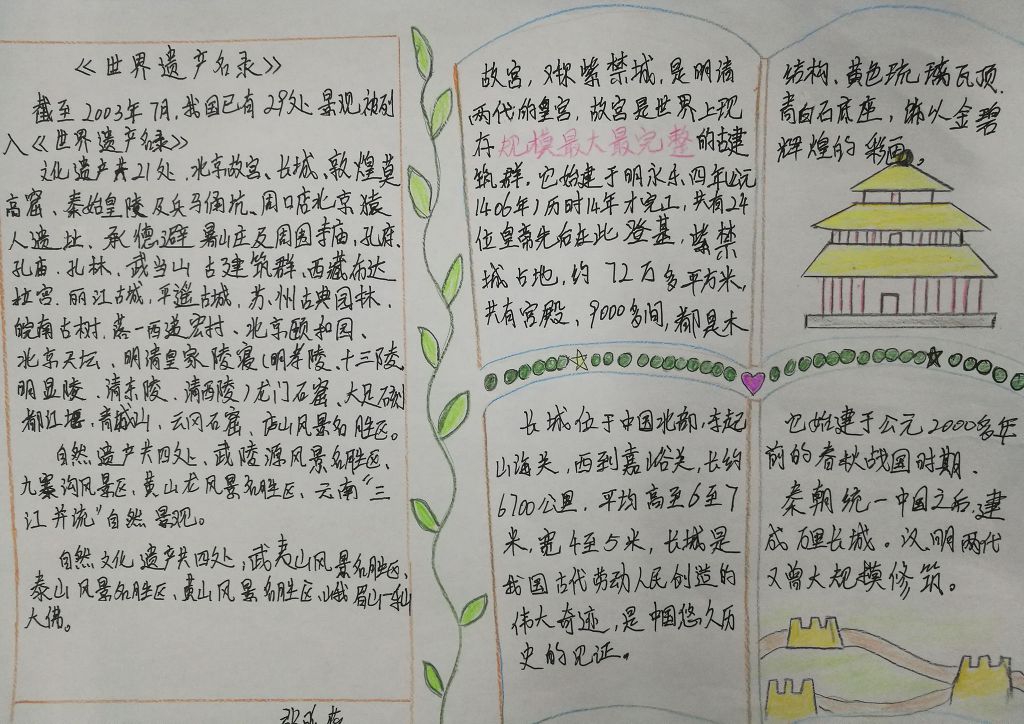 《世界遗产名录》
截至2003年7月,我国已有29处景观被列
入《世界遗产名录》
文化遗产共21处、北京故宫、长城、敦煌莫
高窟、秦始皇陵及兵马俑坑、周口店北京猿
人遗址、承德避暑山庄及周围寺庙、孔府、
孔庙、孔林、武当山古建筑群、西藏布达
拉宫、丽江古城,平遥古城,苏州古典园林、
皖南古村落—西递宏村、北京颐和园、
北京天坛、明清皇家陵寝(明孝陵、十三陵
明显陵、清东陵、清西陵)龙门石窟、大足石刻
都江堰、青城山、云冈石窟、庐山风景名胜区。
自然遗产共四处、武陵源风景名胜区、
九寨沟风景区、黄山龙风景名胜区、云南“三
江并流”自然景观。
自然文化遗产共四处,武夷山风景名胜区、
泰山风景名胜区、黄山风景名胜区、峨眉山—乐山
大佛。
故宫,又称紫禁城,是明清
两代的皇宫,故宫是世界上现
存规模最大最完整的古建
筑群,它始建于明永乐四年(公元
1406年)历时14年才完工,共有24
位皇帝先后在此登基,紫禁
城占地,约72万多平方米,
共有宫殿、9000多间,都是木
结构、黄色琉璃瓦顶、
青白石底座,饰以金碧
辉煌的彩画。
长城位于中国北部,东起
山海关,西到嘉峪关,长约
6700公里,平均高至6至7
米,宽4至5米,长城是
我国古代劳动人民创造的
伟大奇迹,是中国悠久历
史的见证。
它始建于公元2000多年
前的春秋战国时期.
秦朝统一中国之后,建
成万里长城。汉、明两代
又曾大规模修筑。